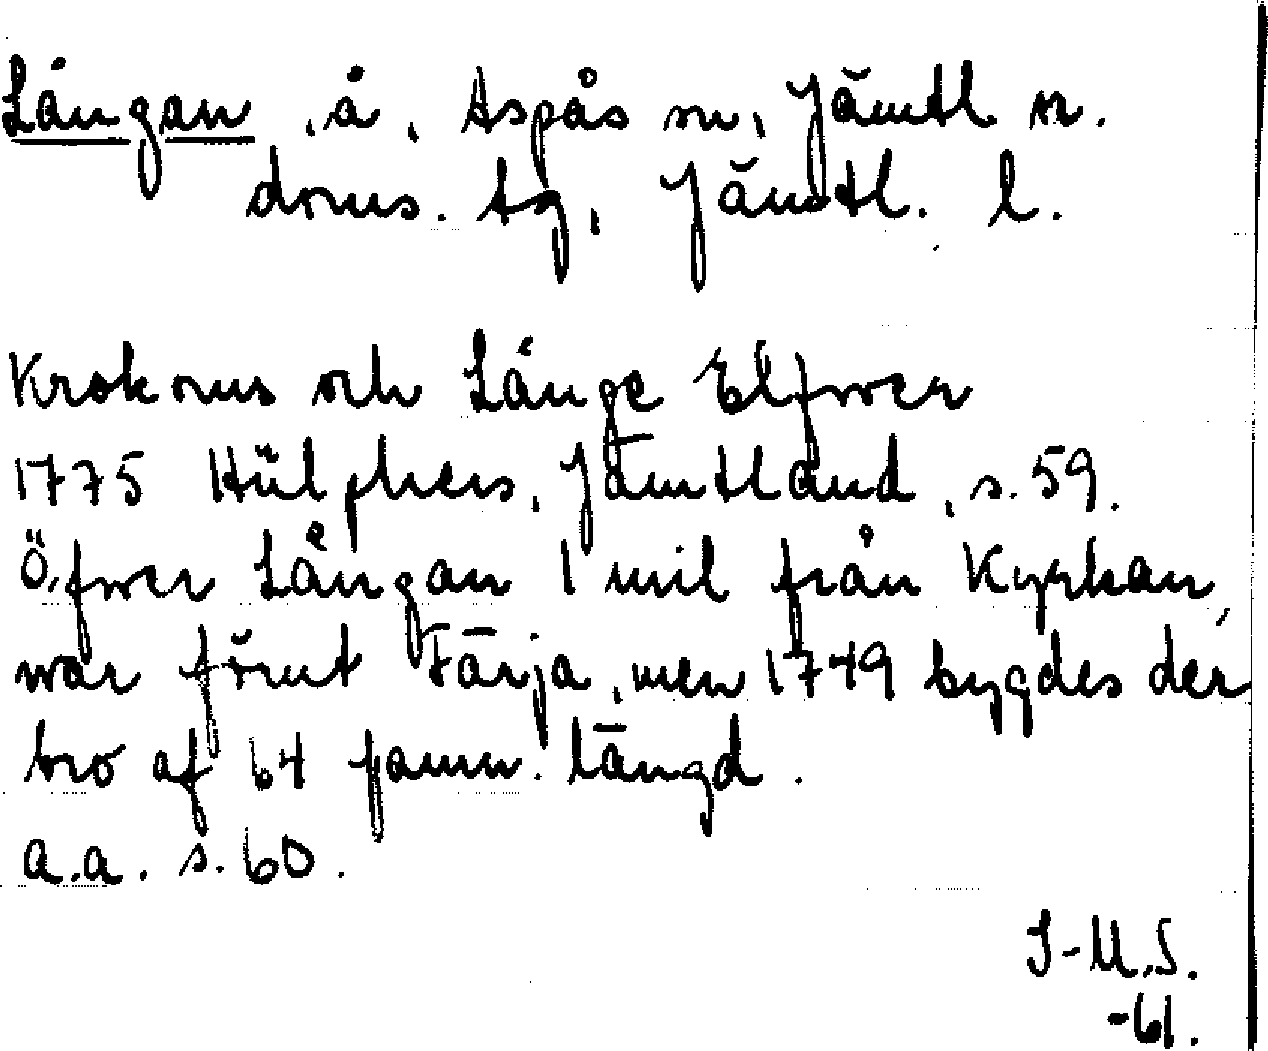 Långan, å, Aspås sn, Jämtl n.
doms. tg, Jämtl. l.
Krokoms och Långe Elfwer
1775 Hülphers, Jämtland, s. 59.
Öfwer Långan 1 mil från Kyrkan,
war förut Färja, men 1749 bygdes der
bro af 64 famn. längd.
a.a. s. 60.
I-M.S.
-61.